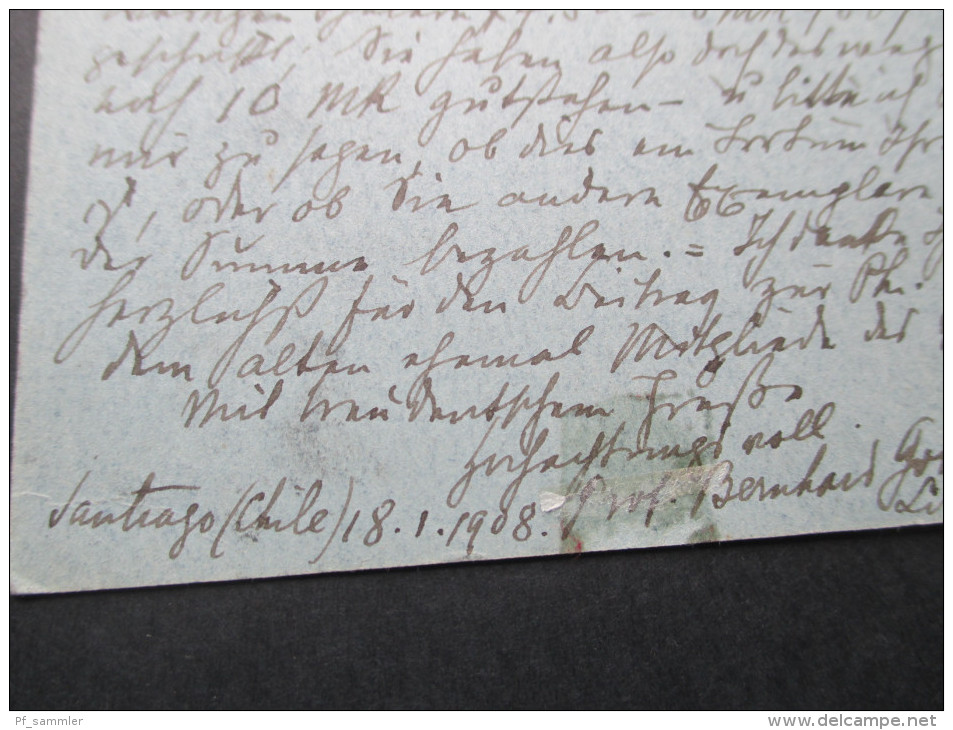 geschickt, Sie haben also doch
noch 10 Mk gutstehen – u bitte ich
mir zu sagen, ob dies ein Irrtum Ihr
oder ob Sie andere Exemplare
der Summe bezahlen. = Ich danke
herzlichst für den Beitrag zur Ph.
dem alten ehemal Mitgliede des
Mit treudeutschem Gruße
hochachtungsvoll.
Santiago (Chile) 18.1.1908. Prof. Bernhard
Pf_sammler
www.delcampe.net